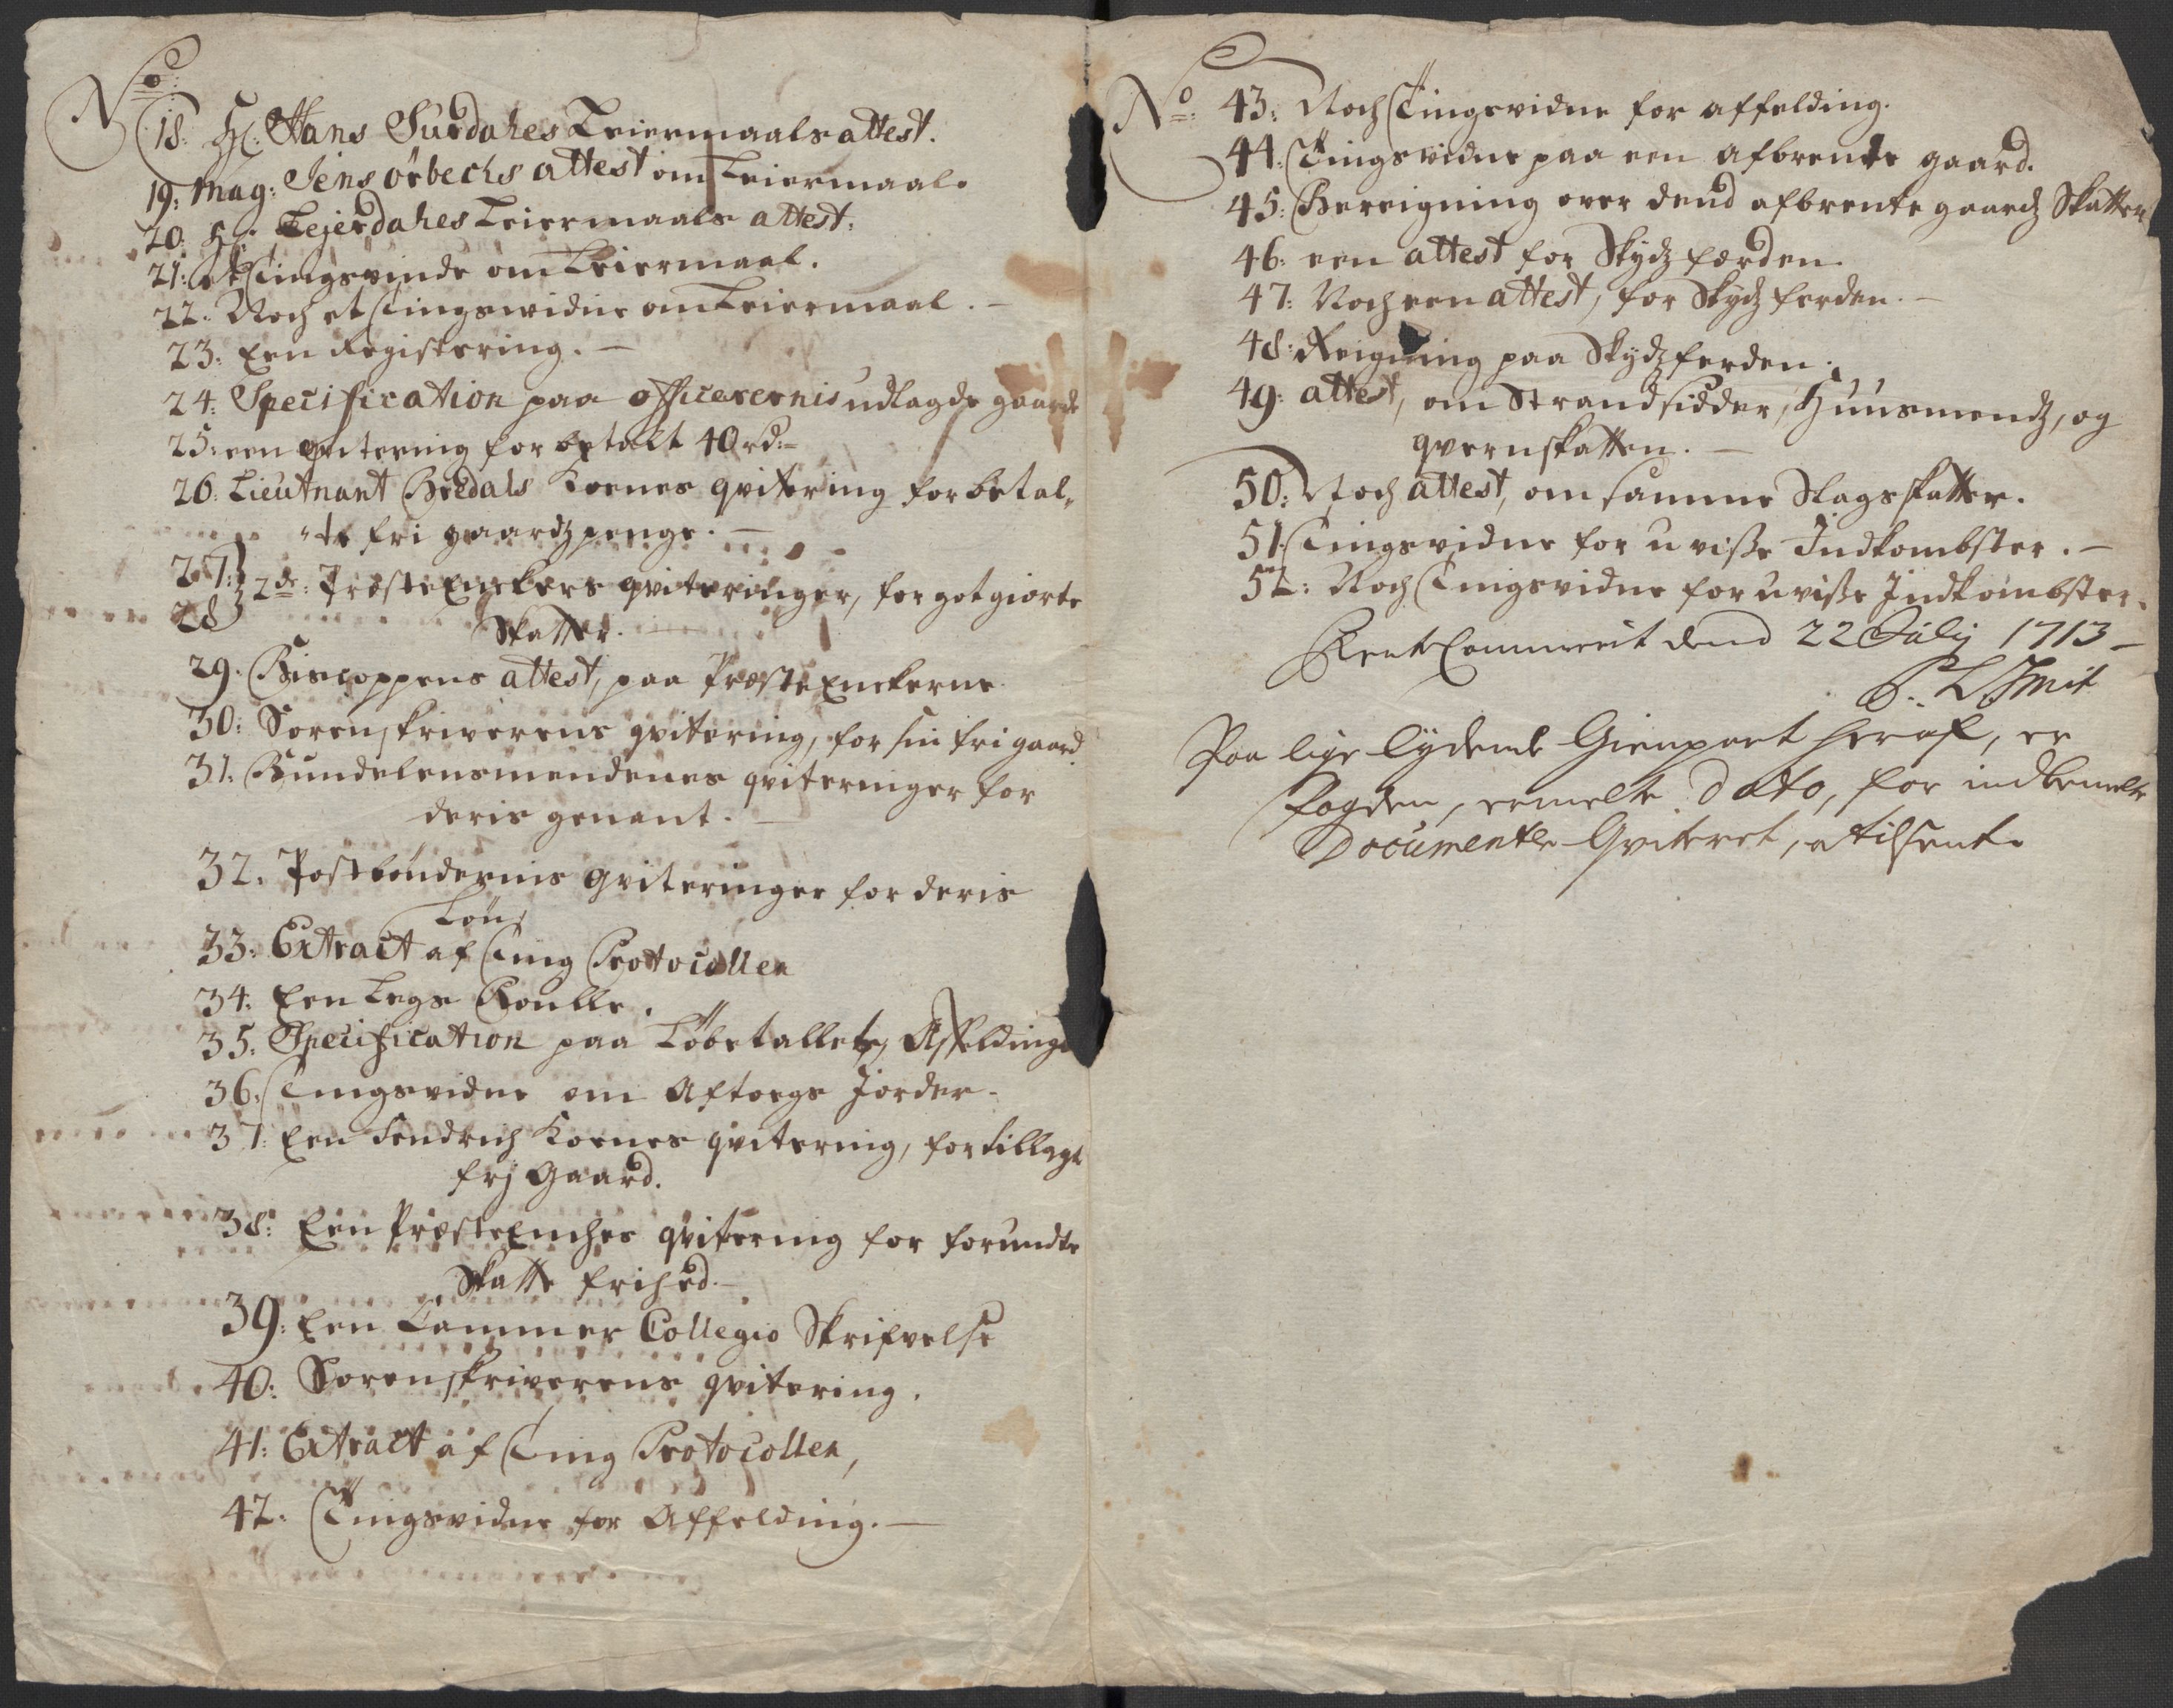 No
18: Hr: Hans Surdahes Leiermaals attest.
19: Mag: Jens örbechs attest om Leiermaal.
20: Hr: Lejerdahes Leiermaals attest.
21: et Tingsvinde om Leiermaal.
22. Noch et Tingsvidne om Leiermaal. –
23: Een Registering. –
24: Specification paa officerernis udlagde gaarde
25: een qvitering for betalt 40 rd: –
26: Lieutnant Bredals Koenes qvitering for betal„
„te fri gaardz penge. –
27:
28 } 2de: Præste Enckers qviteringer, for got giorte
Skatter.
29. Biscoppens attest, paa Præste Enckerne.
30: Sorenskriverens qvitering, for sin fri gaard.
31: Bundelensmendenes qviteringer for
deris genant. –
32. Postbøndernis qviteringer for deris
Løn
33: Extract af Ting Protocollen
34: Een Legs Roulle.
35. Specification paa Løbetallets, Affeldinge
36: Tingsvidne om Aftoegs Jorder –
37: Een Fendrich Koenes qvitering, for tillagt
frj Gaard.
38: Een Præste Enches qvitering for forundte
Skatte frihed. –
39: Een Cammer Collegio Skrifvelse
40: Sorenskriverens qvitering.
41: Extract af Ting Protocollen,
42. Tingsvidne for Affelding. –
No:
43: Noch Tingsvidne for affelding.
44: Tingsvidne paa een afbrente gaard.
45: Bereigning over dend afbrente gaardz Skatter
46: een attest for Skydz færden
47: Noch een attest, for Skydz ferden. –
48: Reigning paa Skydzferden.
49: attest, om Strandsidder, Huusmendz, og
qvernskatten. –
50: Noch attest, om samme Slags skatter.
51. Tingsvidne for uvisse Indkombster. –
52: Noch Tingsvidne for uvisse Indkombster.
Rente Cammeret dend 22 July 1713 –
P. L Smit
Paa lige lydende Gienpart heraf, er
fogden, ermelte dato, for indbemelte
Documenter Qviteret, a tilsent.